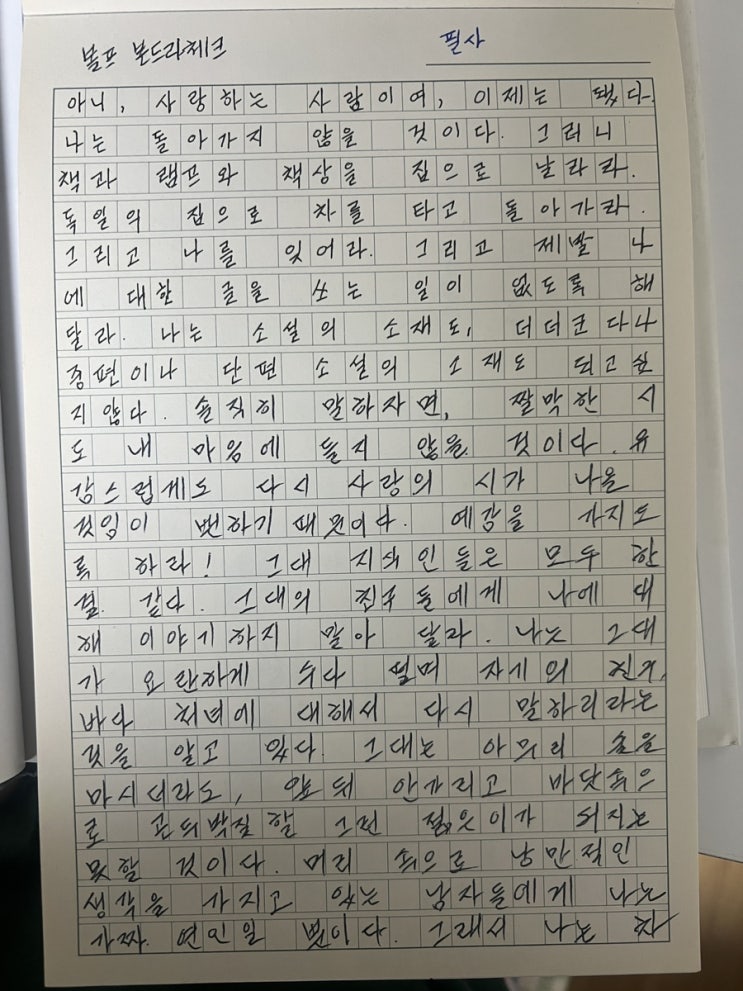 볼프 본드라체크
필사
아니, 사랑하는 사람이여, 이제는 됐다.
나는 돌아가지 않을 것이다. 그러니
책과 램프와 책상을 집으로 날라라.
독일의 집으로 차를 타고 돌아가라.
그리고 나를 잊어라. 그리고 제발 나
에 대한 글을 쓰는 일이 없도록 해
달라. 나는 소설의 소재도, 더더군다나
중편이나 단편 소설의 소재도 되고싶
지않다. 솔직히 말하자면, 짤막한 시
도 내 마음에 들지 않을 것이다. 유
감스럽게도 다시 사랑의 시가 나올
것임이 뻔하기 때문이다. 예감을 가지도
록 하라! 그대 지식인들은 모두 한
결 같다. 그대의 친구들에게 나에 대
해 이야기하지 말아 달라. 나는 그대
가 요란하게 수다 떨며 자기의 친구,
바다 처녀에 대해서 다시 말하리라는
것을 알고 있다. 그대는 아무리 술을
마시더라도, 앞뒤 안가리고 바닷속으
로 곤두박질할 그런 젊은이가 되지는
못할 것이다. 머리 속으로 낭만적인
생각을 가지고 있는 남자들에게 나는
가짜 연인일 뿐이다. 그래서 나는 차